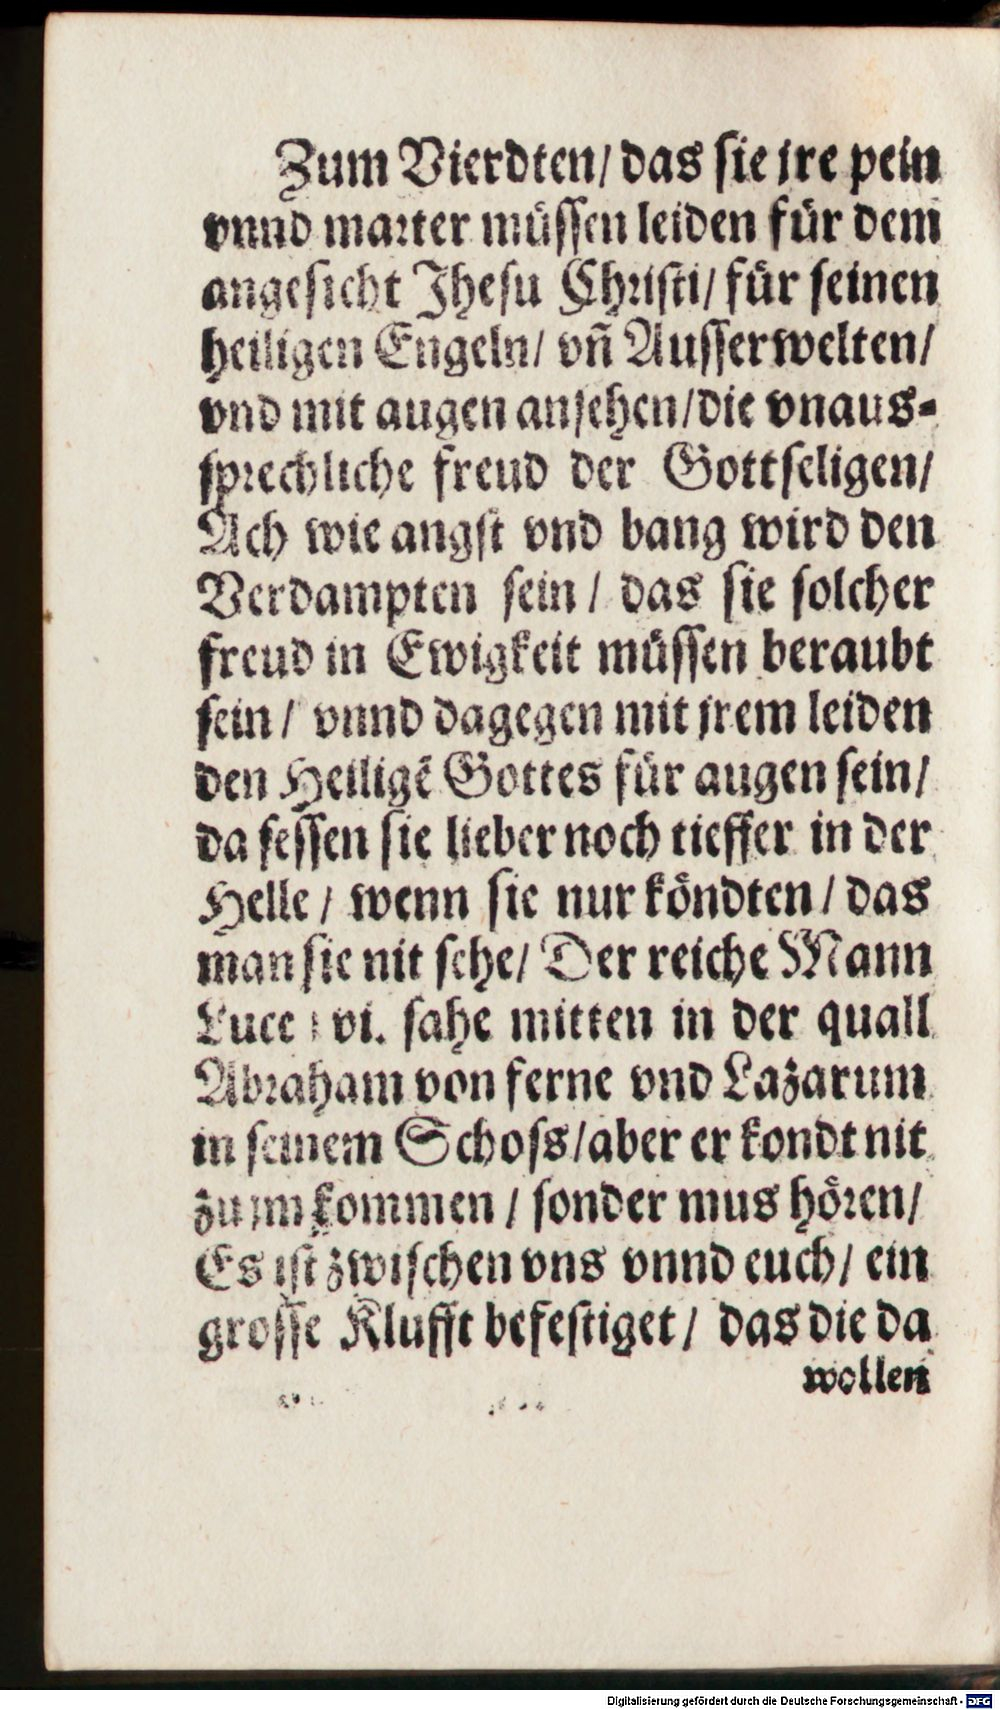 Zum Vierdten/ das sie jre pein
vnnd marter müssen leiden für dem
angesicht Jhesu Christi/ für seinen
heiligen Engeln/ vñ Ausserwelten/
vnd mit augen ansehen/die vnaus-
sprechliche freud der Gottseligen/
Ach wie angst vnd bang wird den
Verdampten sein/ das sie solcher
freud in Ewigkeit müssen beraubt
sein/ vnnd dagegen mit jrem leiden
den Heiligẽ Gottes für augen sein/
da sessen sie lieber noch tieffer in der
Helle/ wenn sie nur köndten/ das
man sie nit sehe/ Der reiche Mann
Luce vi. sahe mitten in der quall
Abraham von ferne vnd Lazarum
in seinem Schoss/aber er kondt nit
zu jm kommen/ sonder mus hören/
Es ist zwischen vns vnnd euch/ ein
grosse Klufft befestiget/ das die da
wollen
Digitalisierung gefördert durch die Deutsche Forschungsgemeinschaft - DFG